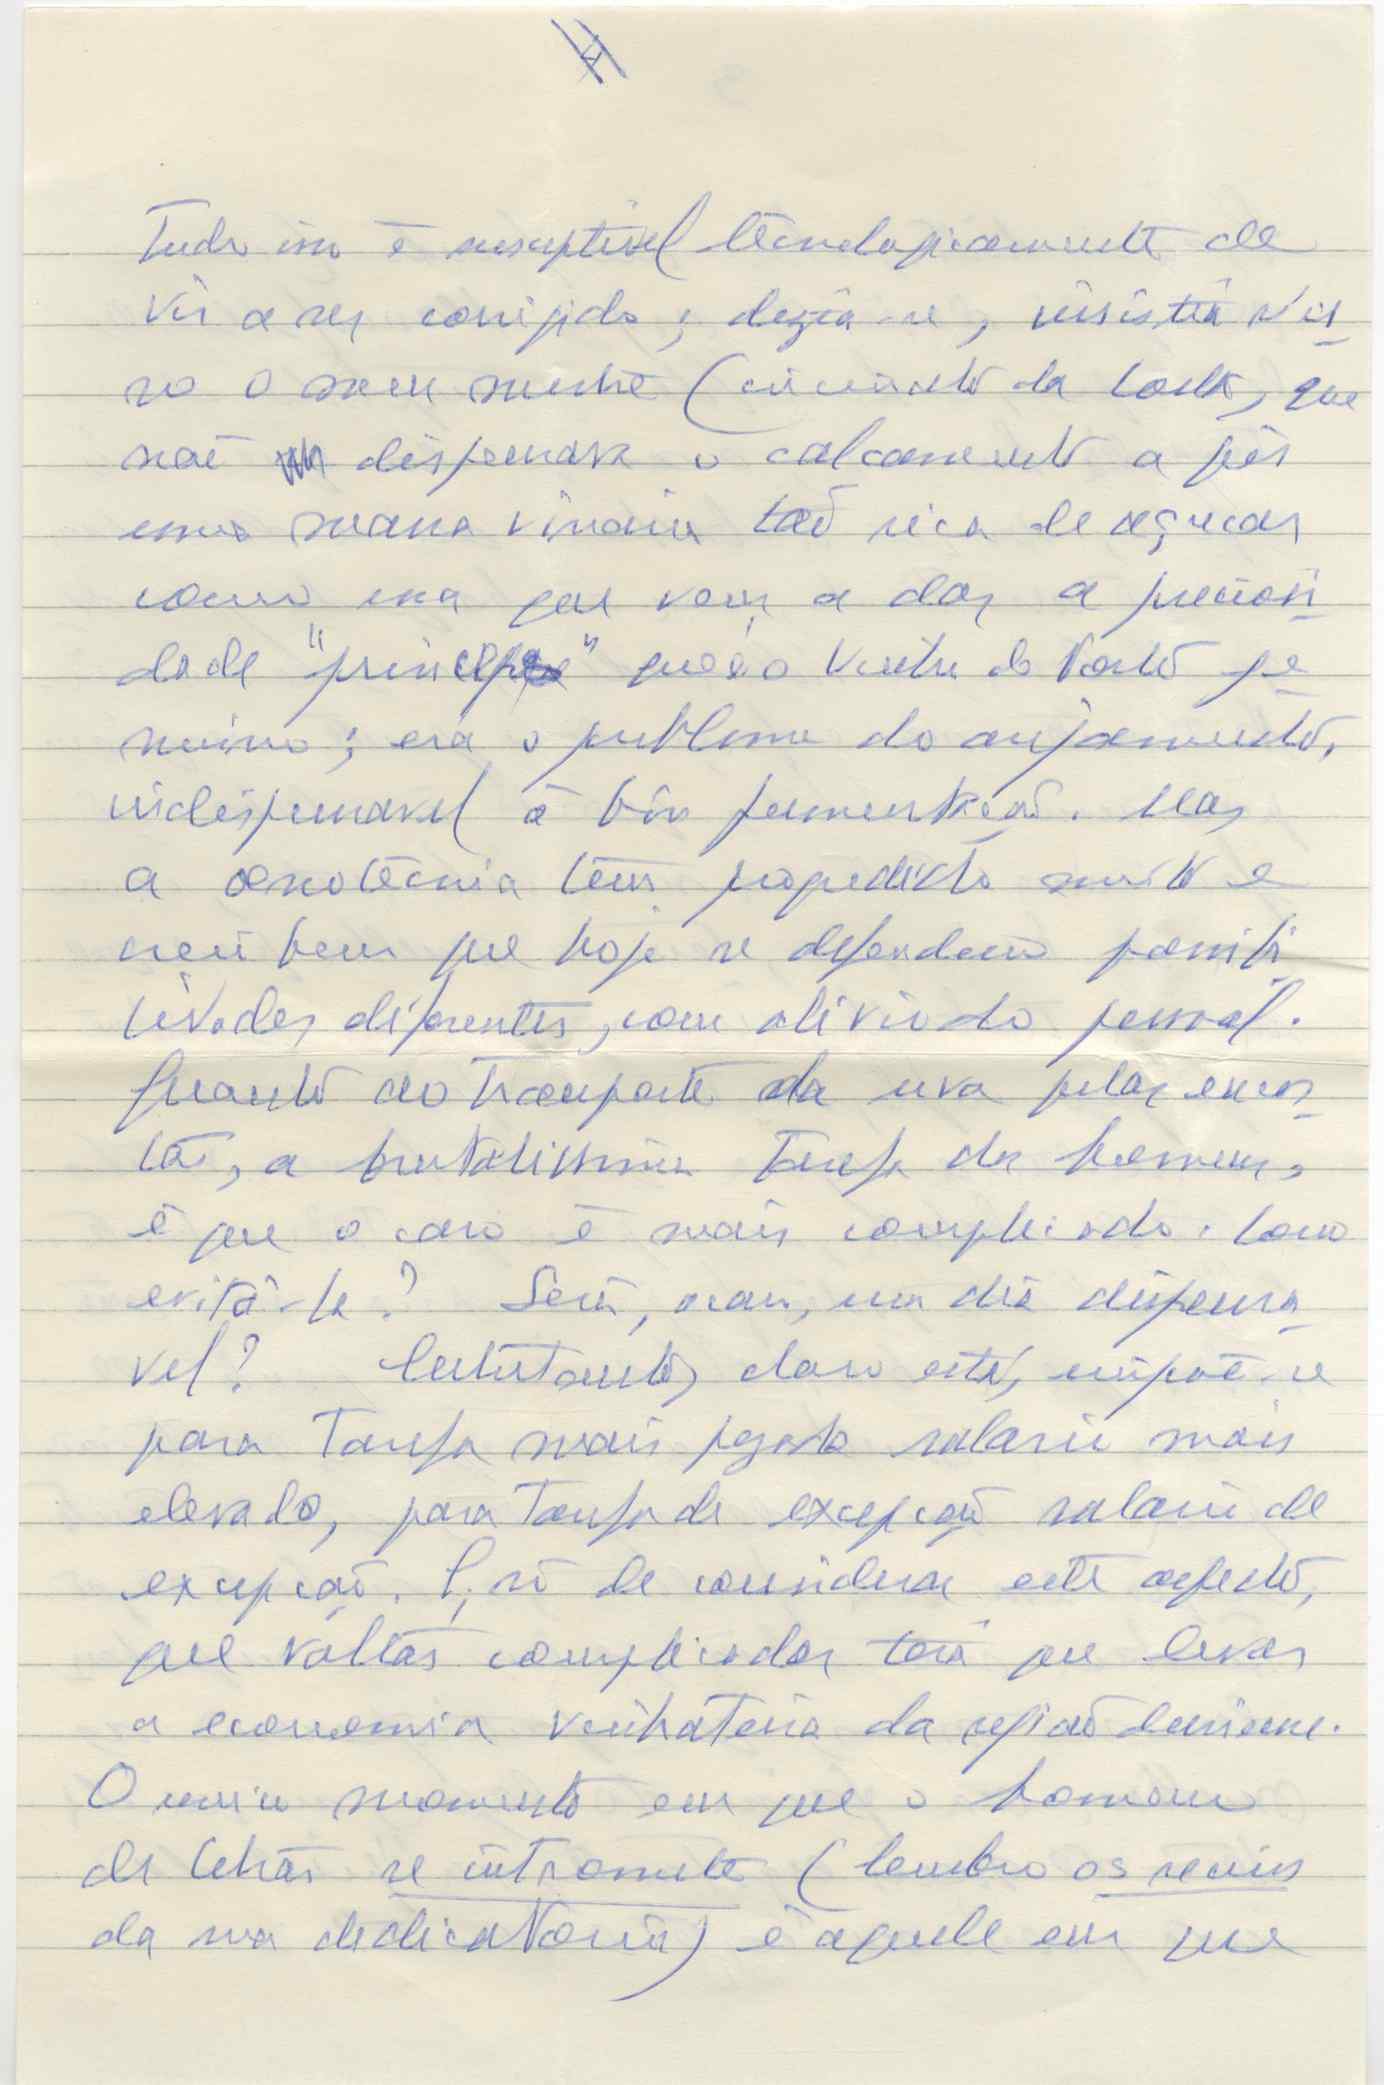 Tudo isso é susceptível tecnologicamente de
vir a ser corrigido; dizia-se, insistia nis
so o meu mestre (circuito da tarde, que
não dispensava o calcamento a pés
uma massa vinária tão rica de açucar
como essa que vem a dar a preciosi
dade "principe" que é o Vinho do Porto ge
nuino; era o problema do arejamento,
indispensavel á boa fermentação. Mas
a œnotecnia tem progredido muito e
creio bem que hoje se defendem possibi
lidades diferentes, com alivio do pessoal.
Quanto ao transporte da uva pelas encos
tas, a brutalissima tarefa do homem,
é que o caso é mais complicado. Como
evitá-la? Será, acaso, um dia dispensa
vel? Entretanto, claro está, impõe-se
para tarefa mais pesada salario mais
elevado, para tarefa de excepção salario de
excepção. E, só de considerar este aspecto,
que voltas complicadas terá que levar
a economia vinhateira da região duriense.
O unico momento em que o homem
de letras se intromete (lembro os
da sua dedicatória) é aquele em que